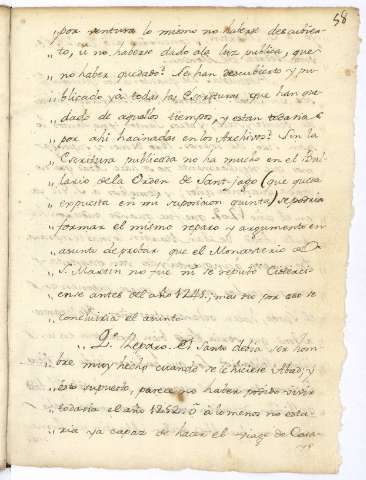 58
„ por ventura lo mismo no haberse descubier-
„ to, ù no haberse dado ala luz publica, que
„ no haber quedado? Se han descubierto y pu-
„ blicado ya todas las Escrituras, que han que-
„ dado de aquellos tiempos, y estan todavia
„ por ahi hacinadas en los Archivos? Sin la
„ Escritura publicada no ha mucho en el Bu-
„ lario dela Orden de Sant-Iago (que queda
„ expuesta en mi suposicion quinta) se podria
„ formar el mismo reparo y argumento en
„ asunto de probar que el Monasterio de
„ S. Martin no fue ni se reputò Cisterci-
„ ense antes del año 1245, mas no por eso se
„ concluiria el asunto.
„ 2.º Reparo. El Santo debia ser hom-
„ bre muy hecho cuando se le hiciese Abad, y
„ esto supuesto, parece no haber podido vivir
„ todavia el año 1252. ò à lo menos no esta-
„ ria ya capaz de hacer el viage de Cora-